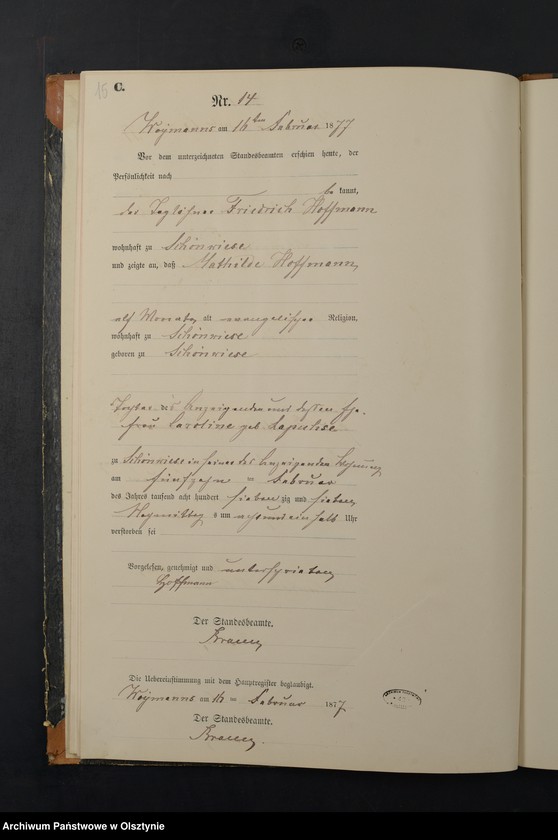 15 C.
Nr. 14
Weymanns am 16ten Februar 1877
Vor dem unterzeichneten Standesbeamten erschien heute, der
Persönlichkeit nach
be kannt,
der Taglöhner Friedrich Hoffmann
wohnhaft zu Schönwiese
und zeigte an, daß Mathilde Hoffmann,
elf Monate, alt evangelischer Religion,
wohnhaft zu Schönwiese
geboren zu Schönwiese
Tochter des Anzeigenden und dessen Ehe-
frau Caroline geb.
zu Schönwiese in seiner des Anzeigenden Wohnung
am fünfzehn = Februar
des Jahres tausend acht hundert sieben zig und sieben
Nachmittag s um acht und einhalb Uhr
verstorben sei
Vorgelesen, genehmigt und unterschrieben
Hoffmann
Der Standesbeamte.
Die Uebereinstimmung mit dem Hauptregister beglaubigt.
Weymanns am 16 = Februar 1877
Der Standesbeamte.
Archiwum Państwowe w Olsztynie